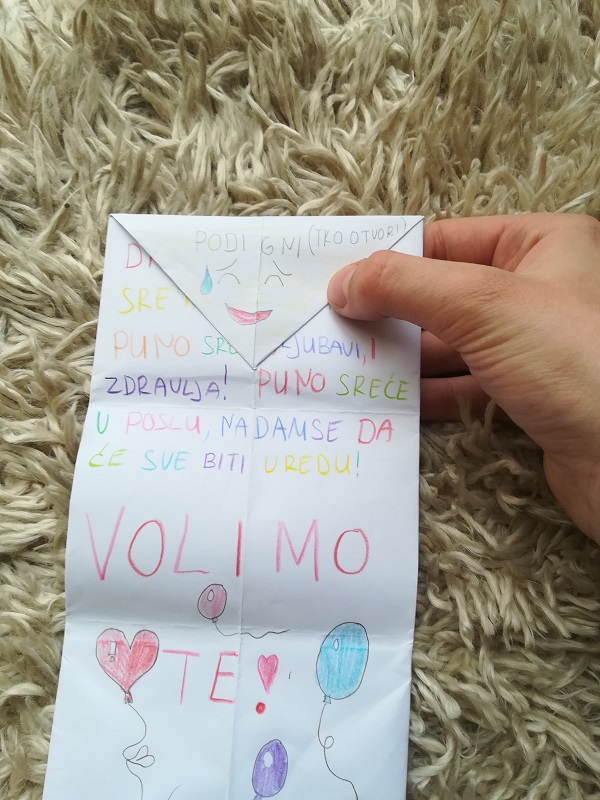 PODIGNI (TKO OTVORI)
PUNO LJUBAVI, I
ZDRAVLJA! PUNO SREĆE
U POSLU, NADAMSE DA
ĆE SVE BITI UREDU!
VOLIMO
TE!